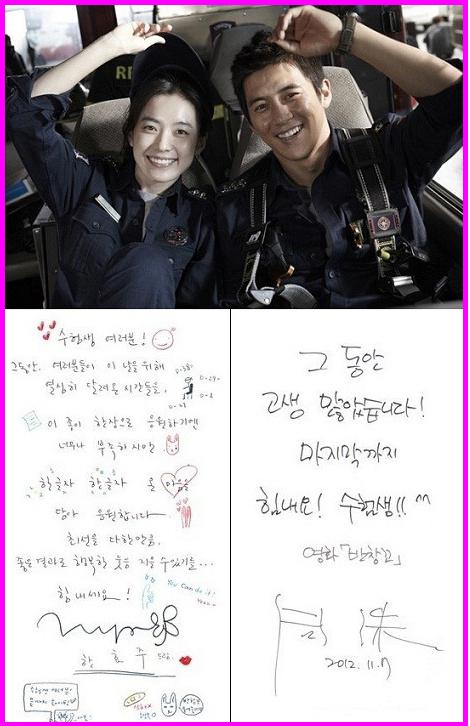 RE
수험생 여러분!
그동안. 여러분들이 이 날을 위해
열심히 달려온 시간들을,
D-38
D-29
D-2
이 종이 한장으로 응원하기엔
너무나 부족하지만
한글자 한글자 온 마음을
담아 응원합니다
최선을 다한만큼.
좋은 결과로 행복한 웃음 지을 수 있기를...
힘내세요!
You Can do it!
한효주 드림.
그 동안
고생 많았습니다!
마지막까지
힘내요! 수험생!! ^^
영화「반창꼬」
2012. 11. 7